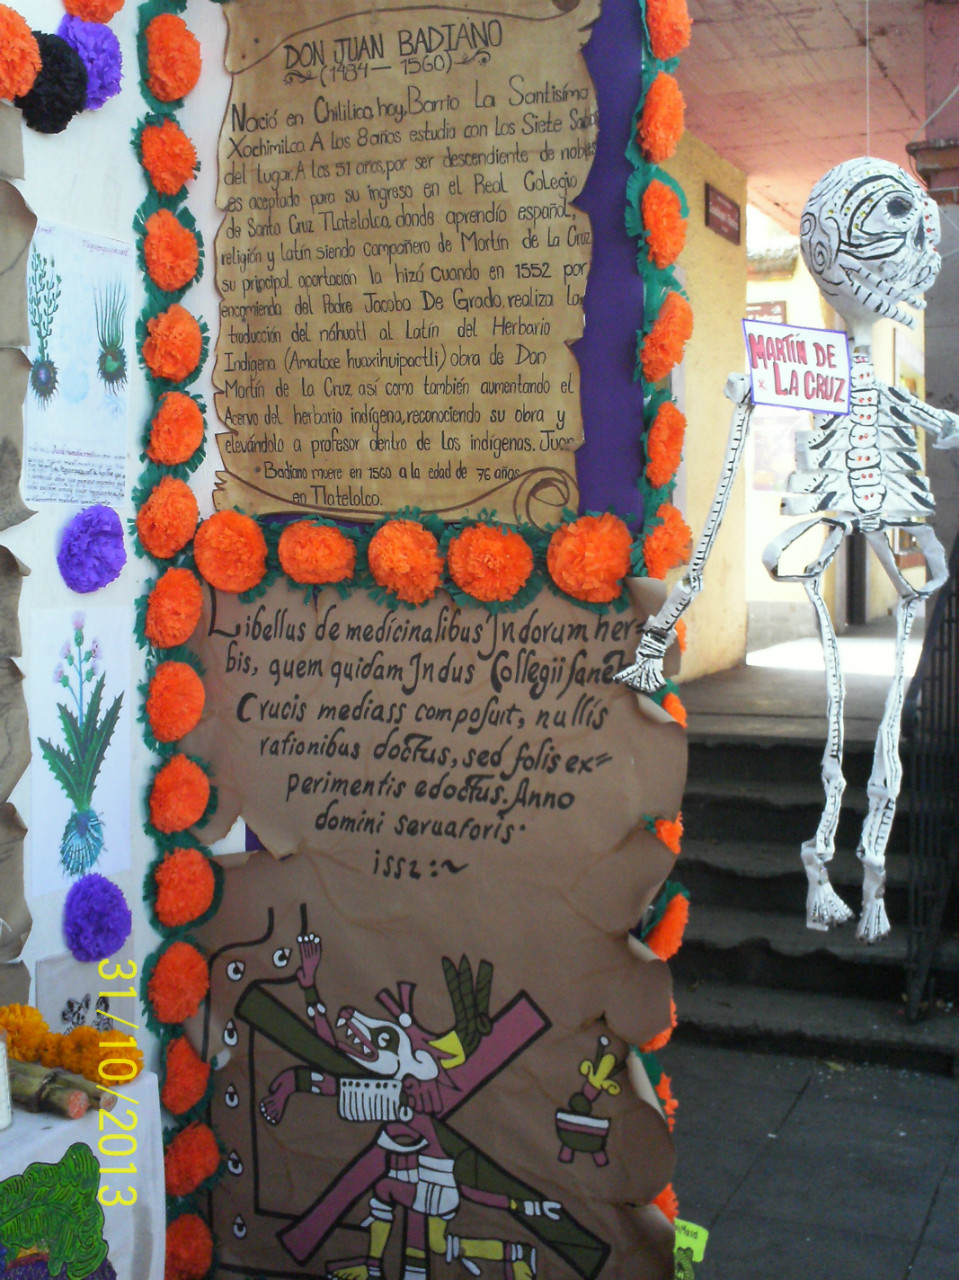 DON JUAN BADIANO
(1484 — 1560)
Nació en Chililico, hoy, Barrio La Santísima
Xochimilco. A los 8 años estudia con los Siete
del lugar. A los 51 años, por ser descendiente de nobles
es aceptado para su ingreso en el Real Colegio
de Santa Cruz Tlatelolco, donde aprendío español,
religión y latín siendo compañero de Martín de La Cruz
su principal aportación la hizó cuando en 1552 por
encomienda del Padre Jacobo De Grado, realiza la
traducción del náhuatl al Latín del Herbario
Indígena (Amatoce huaxihuipactli) obra de Don
Martín de la Cruz así como también aumentando el
Acervo del herbario indígena, reconociendo su obra y
elevándolo a profesor dentro de los indígenas. Juan
Badiano muere en 1560 a la edad de 76 años
en Tlatelolco.
MARTÍN DE
LA CRUZ
Libellus de medícinalibus Jndorum her=
bis, quem quidam Jndus Collegii sanct
Crucis mediass composuit, nullís
rationibus doctus, sed solis ex=
perimentis edoctus. Anno
domini seruaforis.
1552:~
31/10/2013